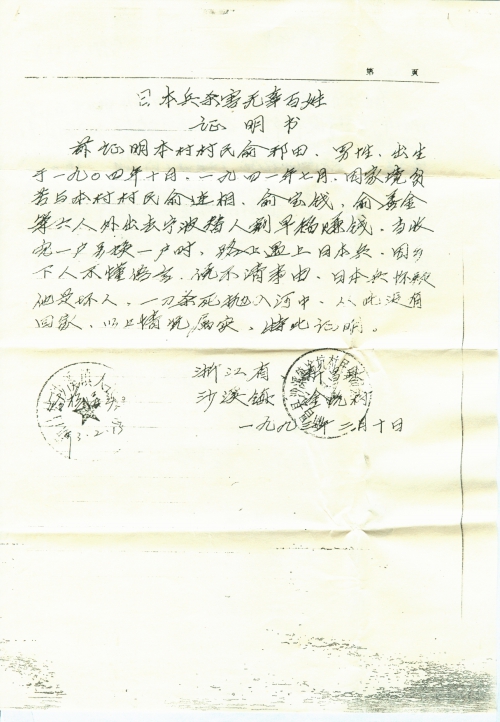 第　　页
日本兵杀害无辜百姓
证明书
兹证明本村村民俞邦田，男性，出生
于一九〇四年十月，一九四一年七月，因家境贫
苦与本村村民俞进相，俞宝钱，俞嘉金
等六人外出去宁波替人割早稻赚钱，当收
完一户另换一户时，路上遇上日本兵，因乡
下人不懂语言，说不清事由，日本兵怀疑
他是坏人，一刀杀死抛入河中，从此没有
回家，以上情况属实，特此证明。
浙江省 新昌县
沙溪镇
一九九三年三月十日